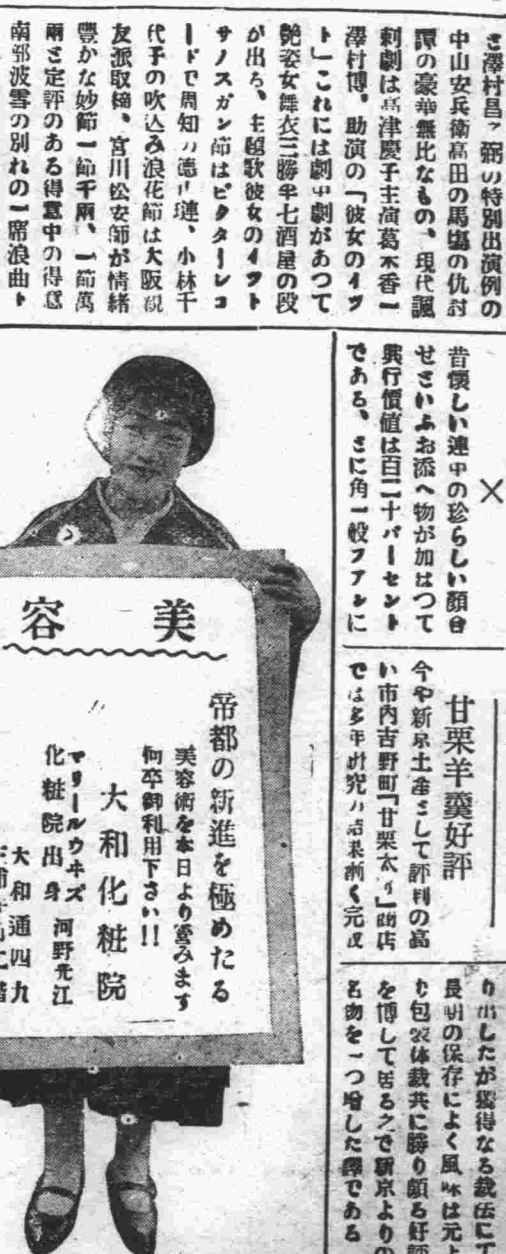 さ澤村昌之弼の特別出演例の
中山安兵衛高田の馬塲の仇討
譚の豪華無比なもの、現代諷
刺劇は高津慶子主演葛木香一
澤村博、助演の「彼女のイツ
ト」これには劇中劇があつて
艶姿女舞衣三勝半七酒屋の段
が出る、主題歌彼女のイツト
サノスガン節はビクターレコ
ードで周知の德山璉、小林千
代子の吹込み浪花節は大阪說
友派取締、宮川松安師が情緖
豊かな妙節一節千兩、一節萬
兩と定評のある得意中の得意
南部波雪の別れの一席浪曲ト
×
昔懷しい連中の珍らしい顏合
せさいふお添へ物が加はつて
興行價値は百二十パーセント
である、さに角一般フアンに
甘栗羊羹好評
今や新京土產さして評判の高
い市內吉野町「甘栗太」商店
では多年硏究の結果漸く元
り出したが獨得なる裁法にて
長期の保存によく風味は元
り包裝体裁共に勝り頗る好評
を博して居るので新京よりの
名物を一つ增した譯である
美容
帝都の新進を極めたる
美容術を本日より營みます
何卒御利用下さい!!
大和化粧院
マリールウヰズ
化粧院出身 河野光江
大和通四九